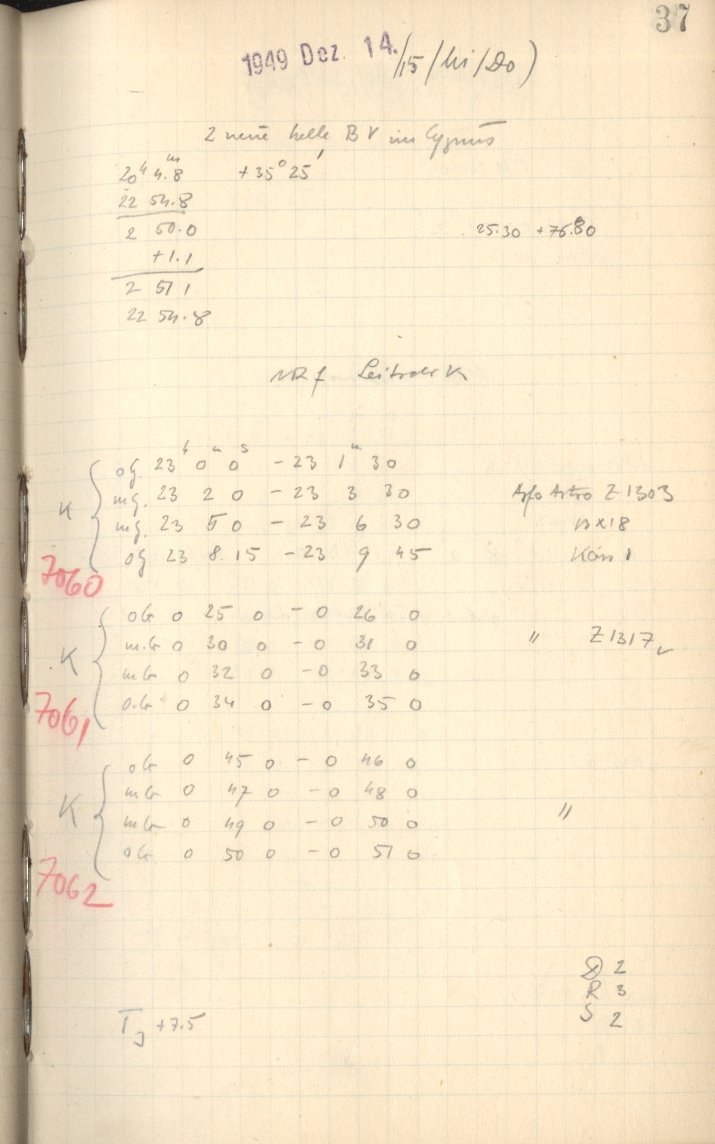 37
1949 Dez. 14./15 /Hi/Do)
2 neue helle BV im Cygnus
20h 4.m8 +35° 25'
22 54.8
2 50.0 25.30 +76.80
+1.1
2 51 1
22 54.8
f Leitrohr K
K
og. 23h 0m 0s - 23 1m 30
mg. 23 2 0 - 23 3 30 Agfa Astro Z 1303
mg. 23 5 0 - 23 6 30
og 23 8.15 - 23 9 45
7060
K
oG 0 25 0 - 0 26 0
mG 0 30 0 - 0 31 0 " Z 1317
mG 0 32 0 - 0 33 0
oG 0 34 0 - 0 35 0
7061
K
oG 0 45 0 - 0 46 0
mG 0 47 0 - 0 48 0
mG 0 49 0 - 0 50 0 "
oG 0 50 0 - 0 51 0
7062
D 2
R 3
S 2
TJ +7.5